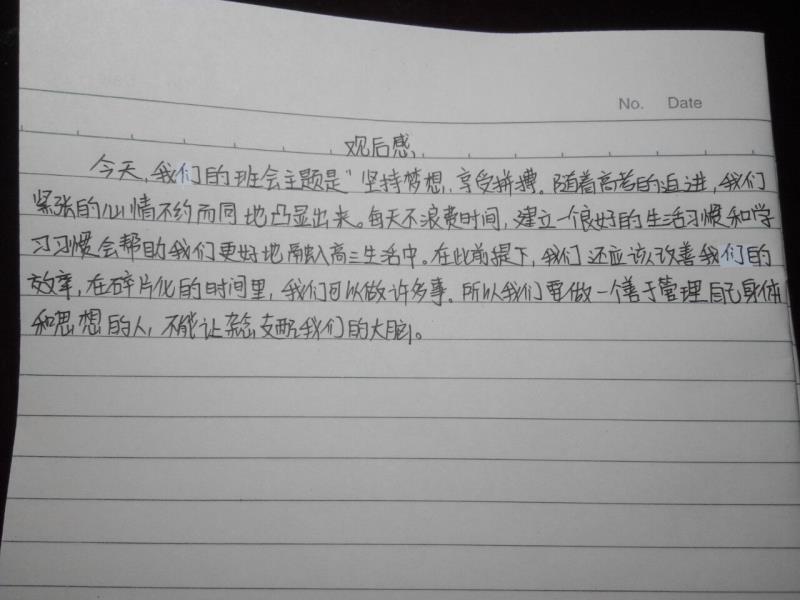 No. Date
观后感,
今天,我们的班会主题是"坚持梦想,享受拼搏。随着高考的迫进,我们
紧张的心情不约而同地凸显出来。每天不浪费时间,建立一个良好的生活习惯和学
习习惯会帮助我们更好地融入高三生活中。在此前提下,我们还应该改善我们的
效率,在碎片化的时间里,我们可以做许多事。所以我们要做一个善于管理自己身体
和思想的人,不能让杂念支配我们的大脑。